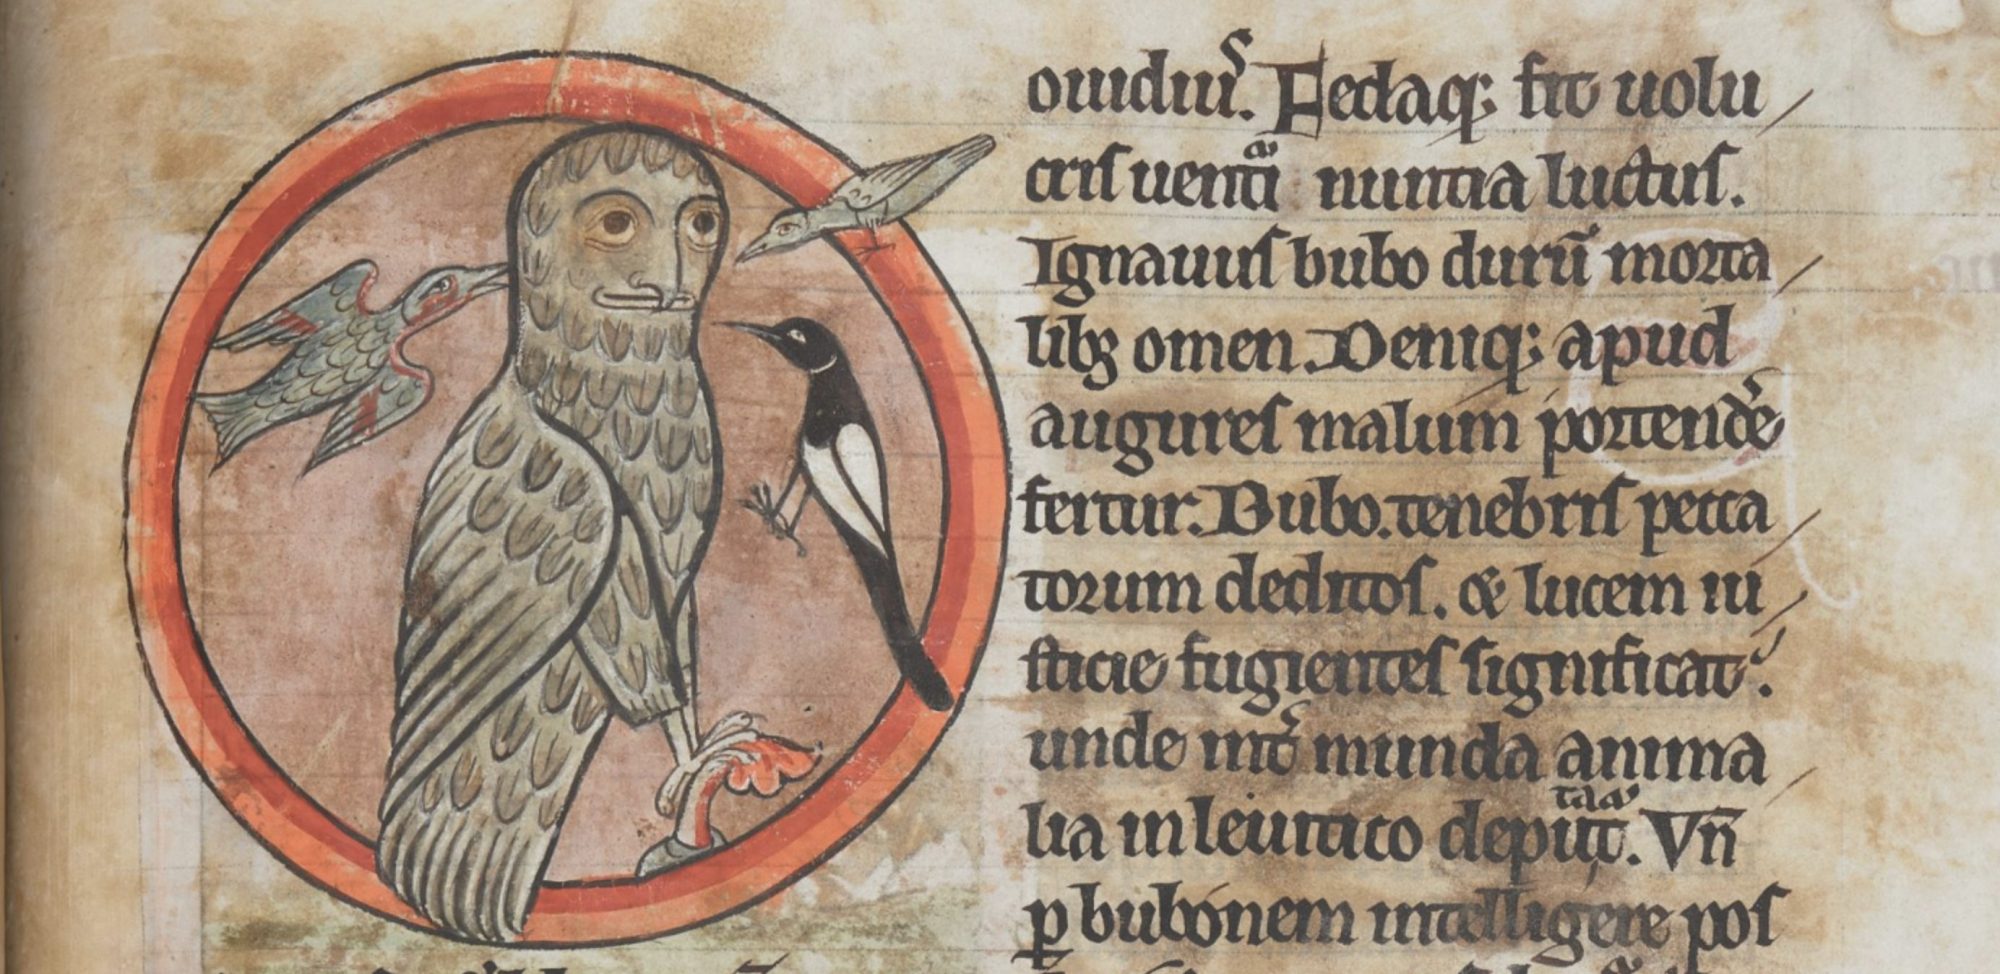 ouidiuſ. Fedaq; fit uolu
criſ uenti nuntia luctuſ.
Ignauuſ bubo durū morta
libꝫ omen. Deniq; apud
augureſ malum portendẻ
fertur. Bubo. tenebriſ pecca
torum deditoſ. & lucem iu
ſticie fugienteſ ſignificat.
unde int̉ munda anima
lia in leuitico deput̄. Vn̄
ꝑ bubonem intelligere poſ